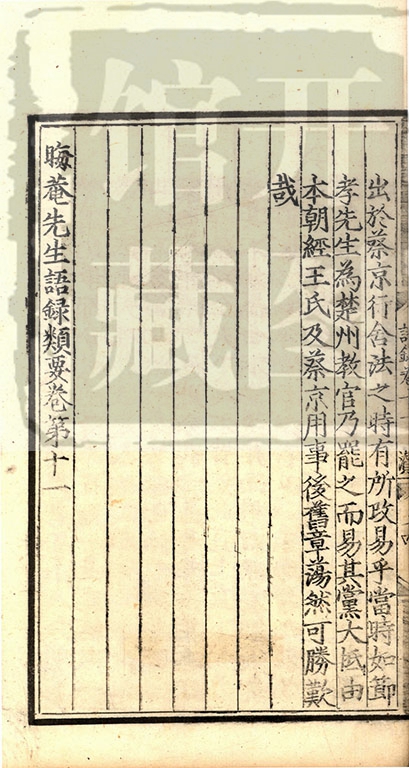 出於蔡京行舍法之時有所改易乎當時如節
孝先生為楚州教官乃罷之而易其黨大抵由
本朝經王氏及蔡京用事後舊章蕩然可勝歎
哉
晦菴先生語録類要卷第十一
开图
馆藏